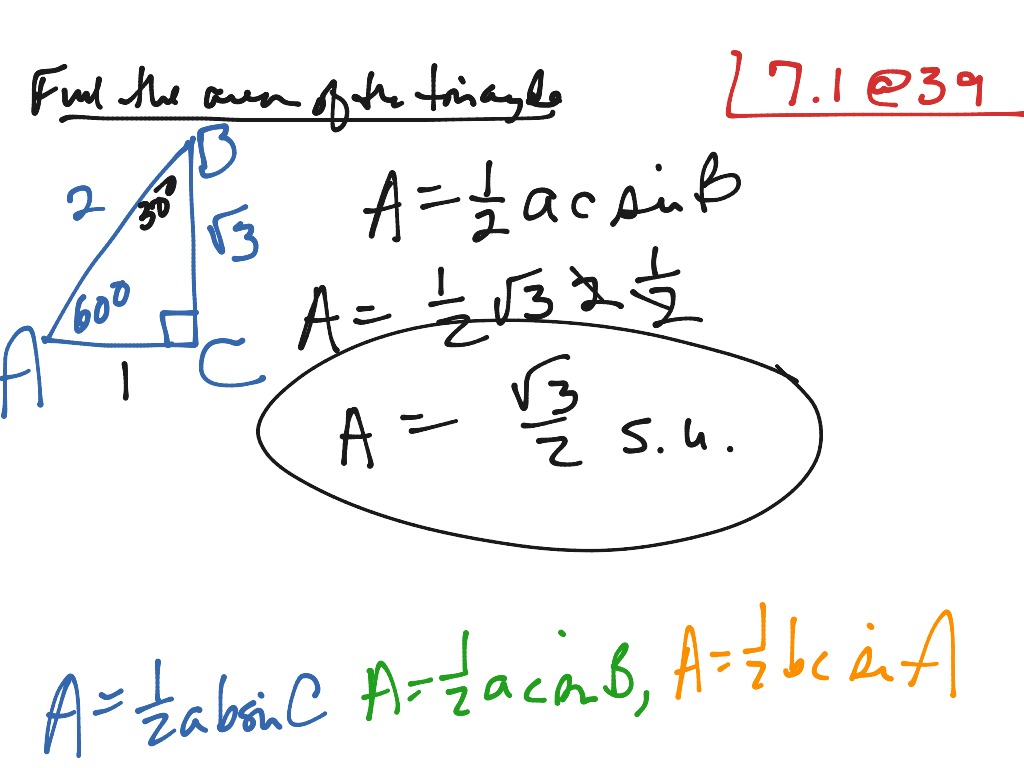 Find the area of the triangle
7.1 @ 39
B
2
30°
√3
60°
A
C
1
A = 1/2 a c sin B
A = 1/2 √3 2 1/2
A = √3/2 s.u.
A = 1/2 a b sin C
A = 1/2 a c sin B,
A = 1/2 b c sin A